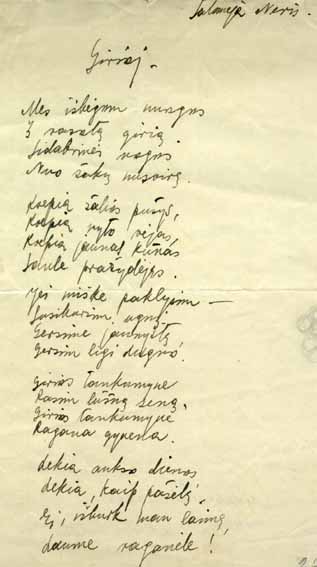 Salomėja Nėris.
Girioj.
Mes išbėgom nuogus
Į rasotą girią.
Sidabrinės ragus
Nuo šakų nusvirę.
Kvepia žalios pušys,
Kvepia ryto vėjas,
Kvepia jaunas kūnas
Saule pražydėjęs.
Jei miške paklysim —
Susikursim ugnį.
Gersime jaunystę
Gersim ligi dugno!
Girios tankumyne
Rasim lūšną seną,
Girios tankumyne
Ragana gyvena.
Lekia aukso dienos
Lekia, kaip pašėlę!
Ei, išburk man laimę,
raganėle!